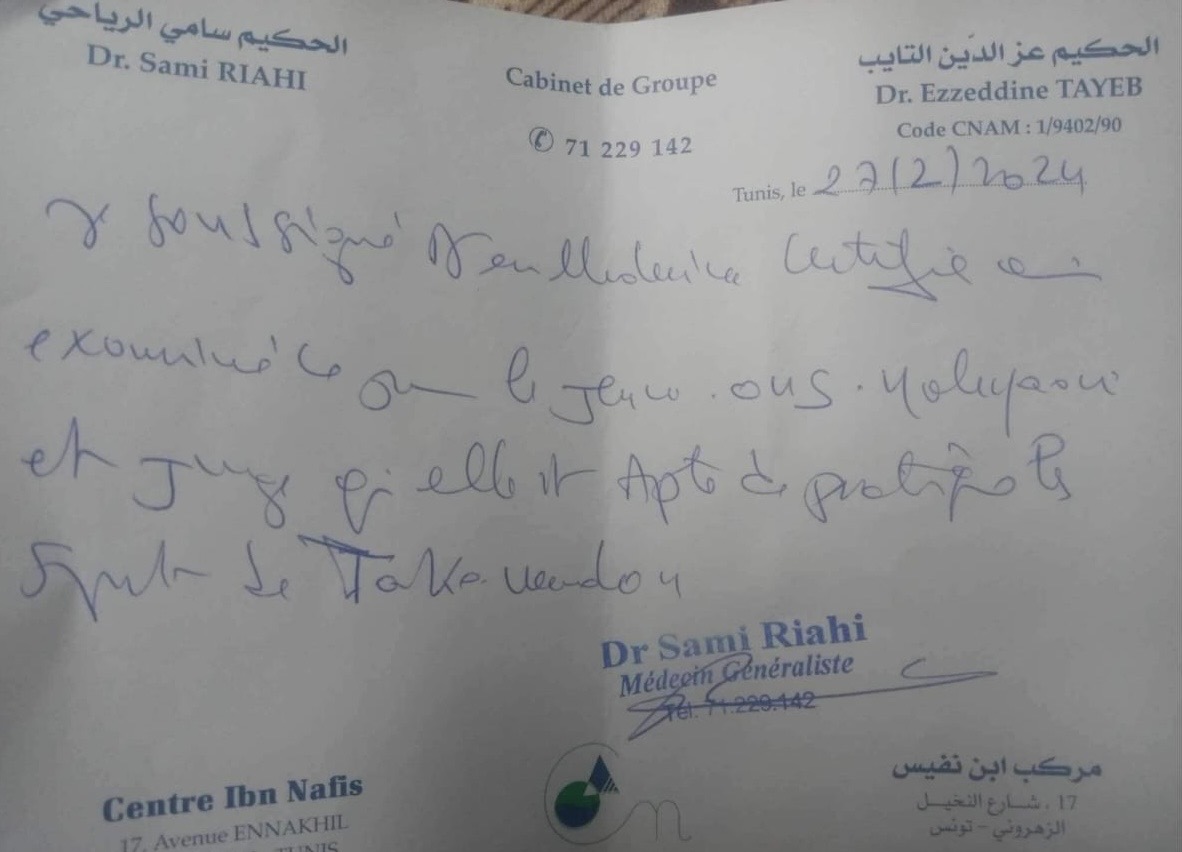 الحكيم سامي الرياحي
Dr. Sami RIAHI
Cabinet de Groupe
71 229 142
الحكيم عز الدّين التايب
Dr. Ezzeddine TAYEB
Code CNAM : 1/9402/90
Tunis, le 27/2/2024
Je soussigné Dr en Medecine Certifie avoir
examiné ce jour le jeune . ons .
et juge qu'elle est Apte à pratiquer le
Sport de Takewendou
Dr Sami Riahi
Médecin Généraliste
Tél. 71.229.142
Centre Ibn Nafis
17, Avenue ENNAKHIL
TUNIS
مركب ابن نفيس
17 ، شارع النخيل
الزهروني - تونس